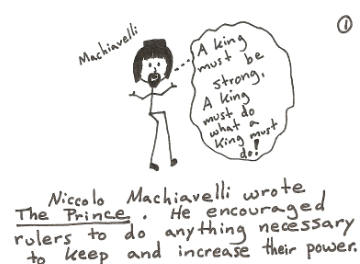 ①
Machiavelli
A king
must be
strong.
A King
must do
what a
King must
do!
Niccolo Machiavelli wrote
The Prince. He encouraged
rulers to do anything necessary
to keep and increase their power.